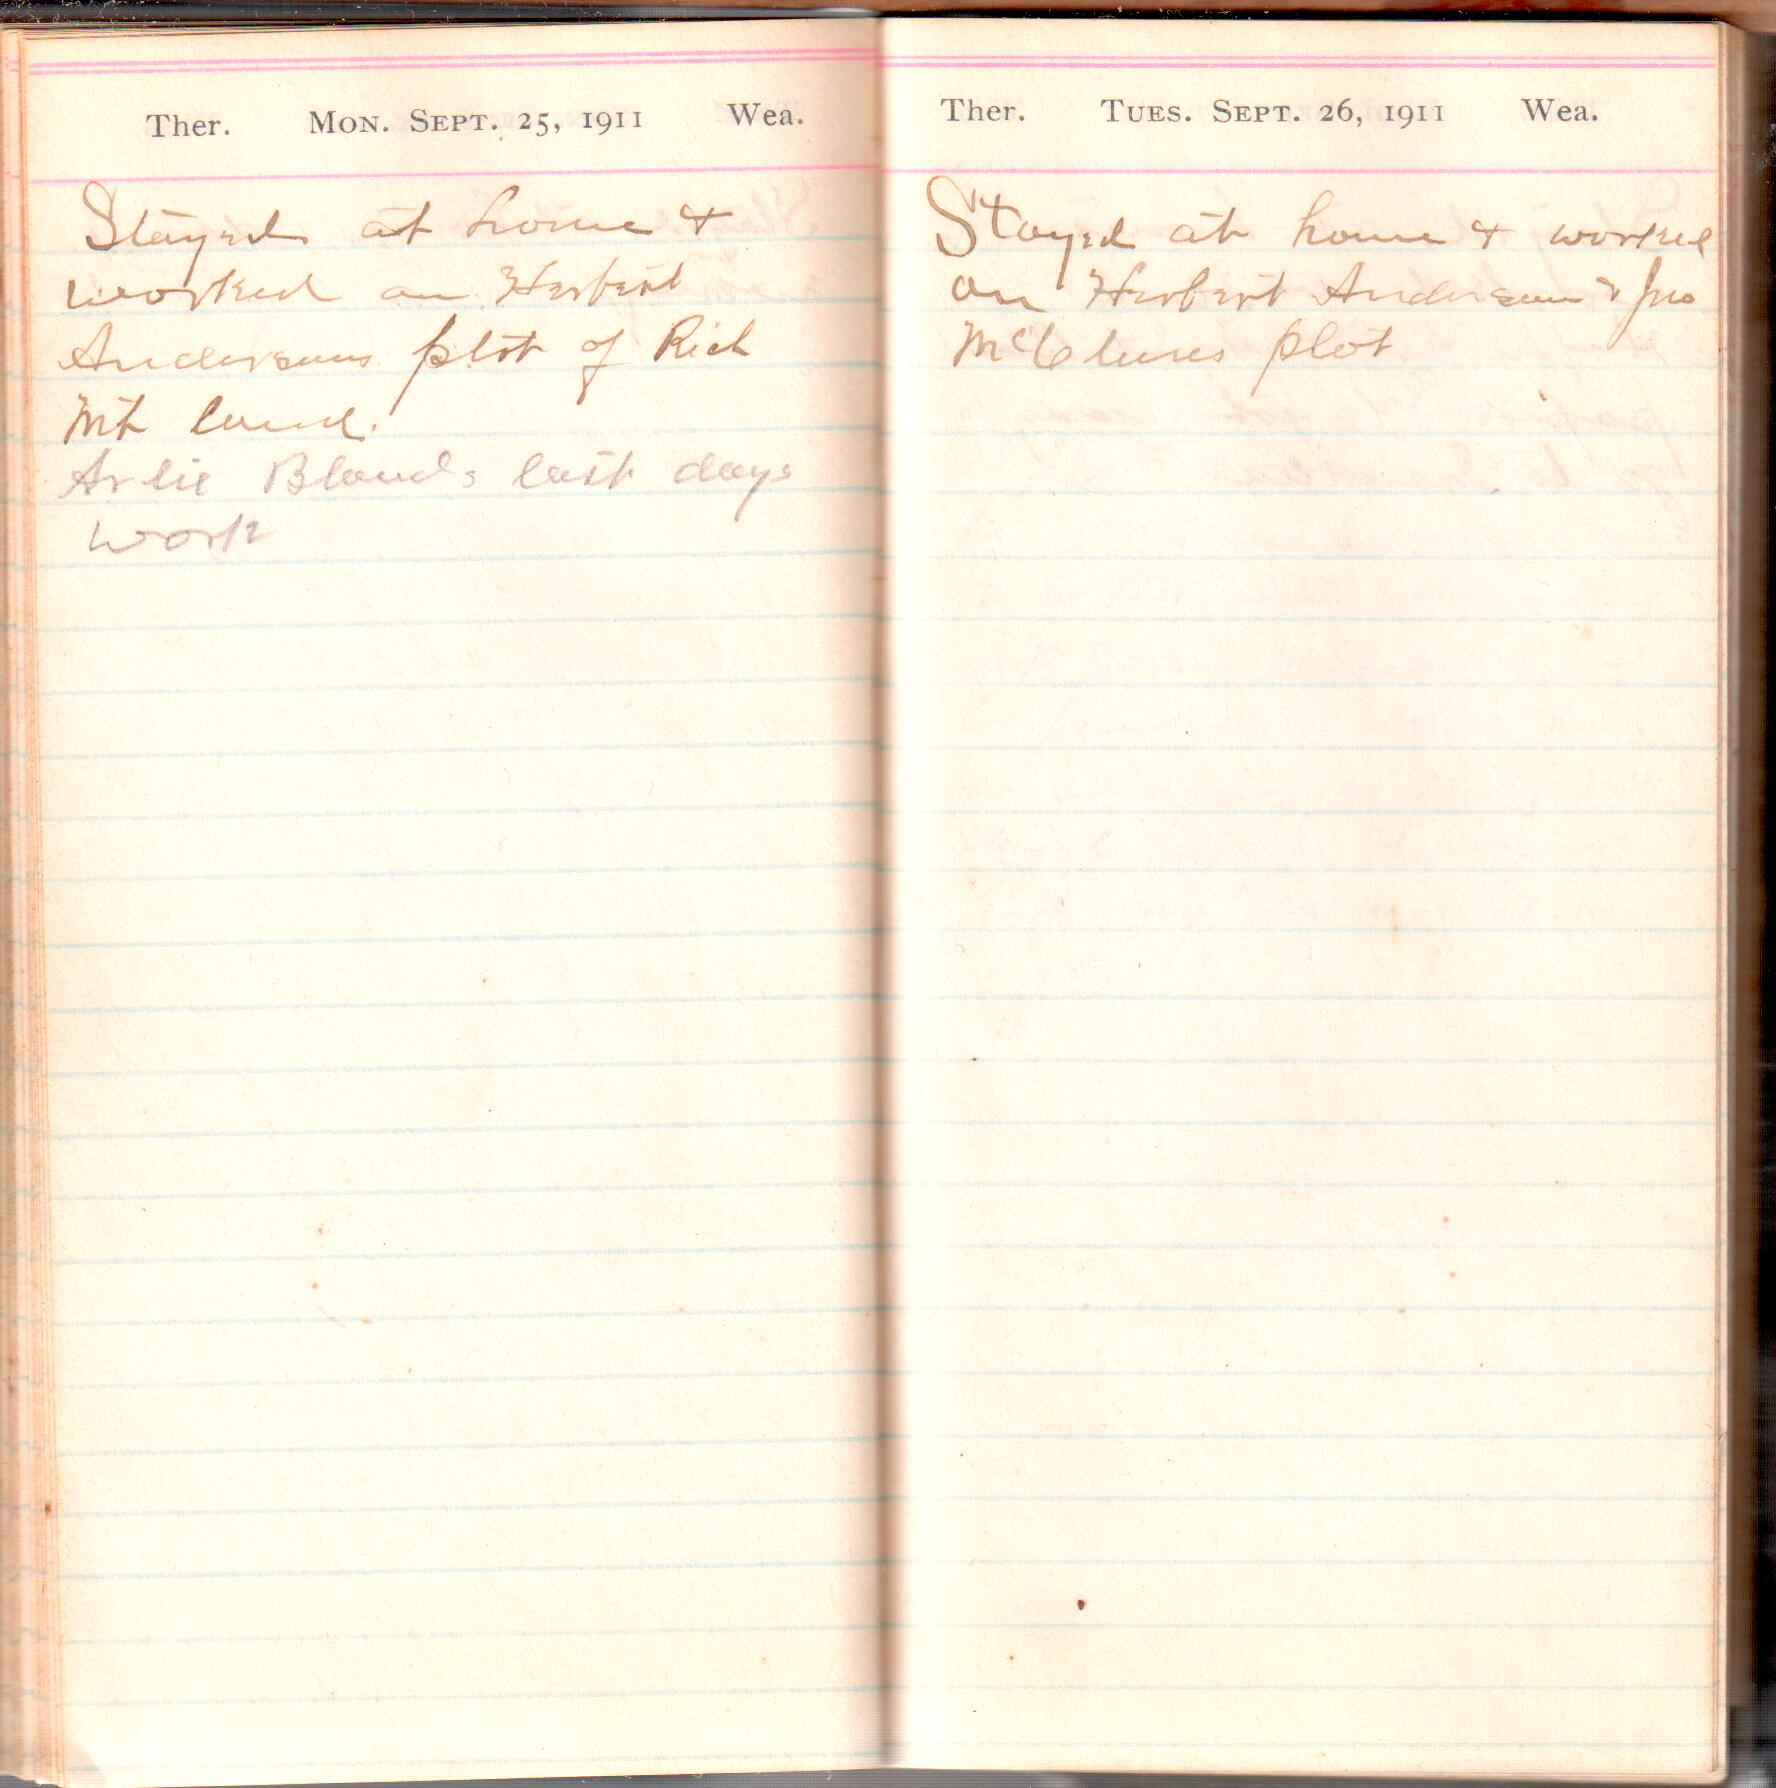 Ther. Mon. Sept. 25, 1911 Wea.
Stayed at home &
worked on Herbert
Andersons plot of Rich
Mt land.
Arlie Blands last days
work
Ther. Tues. Sept. 26, 1911 Wea.
Stayed at home & worked
on Herbert Anderson & Jno
McClures plot